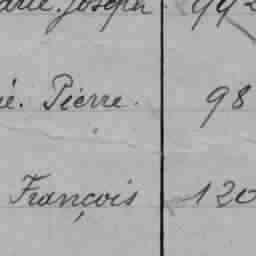 arie. Joseph. 992
é. Pierre. 98
François 120